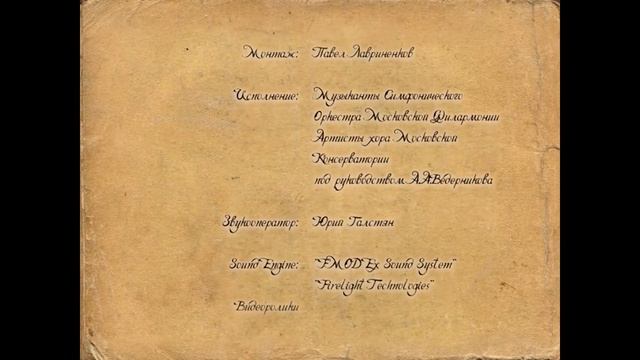 Монтаж: Павел Лавриненков
Исполнение: Музыканты Симфонического
Оркестра Московской Филармонии
Артисты хора Московской
Консерватории
под руководством А.А.Ведерникова
Звукооператор: Юрий Галстян
Sound Engine: "FMOD Ex Sound System"
"Firelight Technologies"
Видеоролики